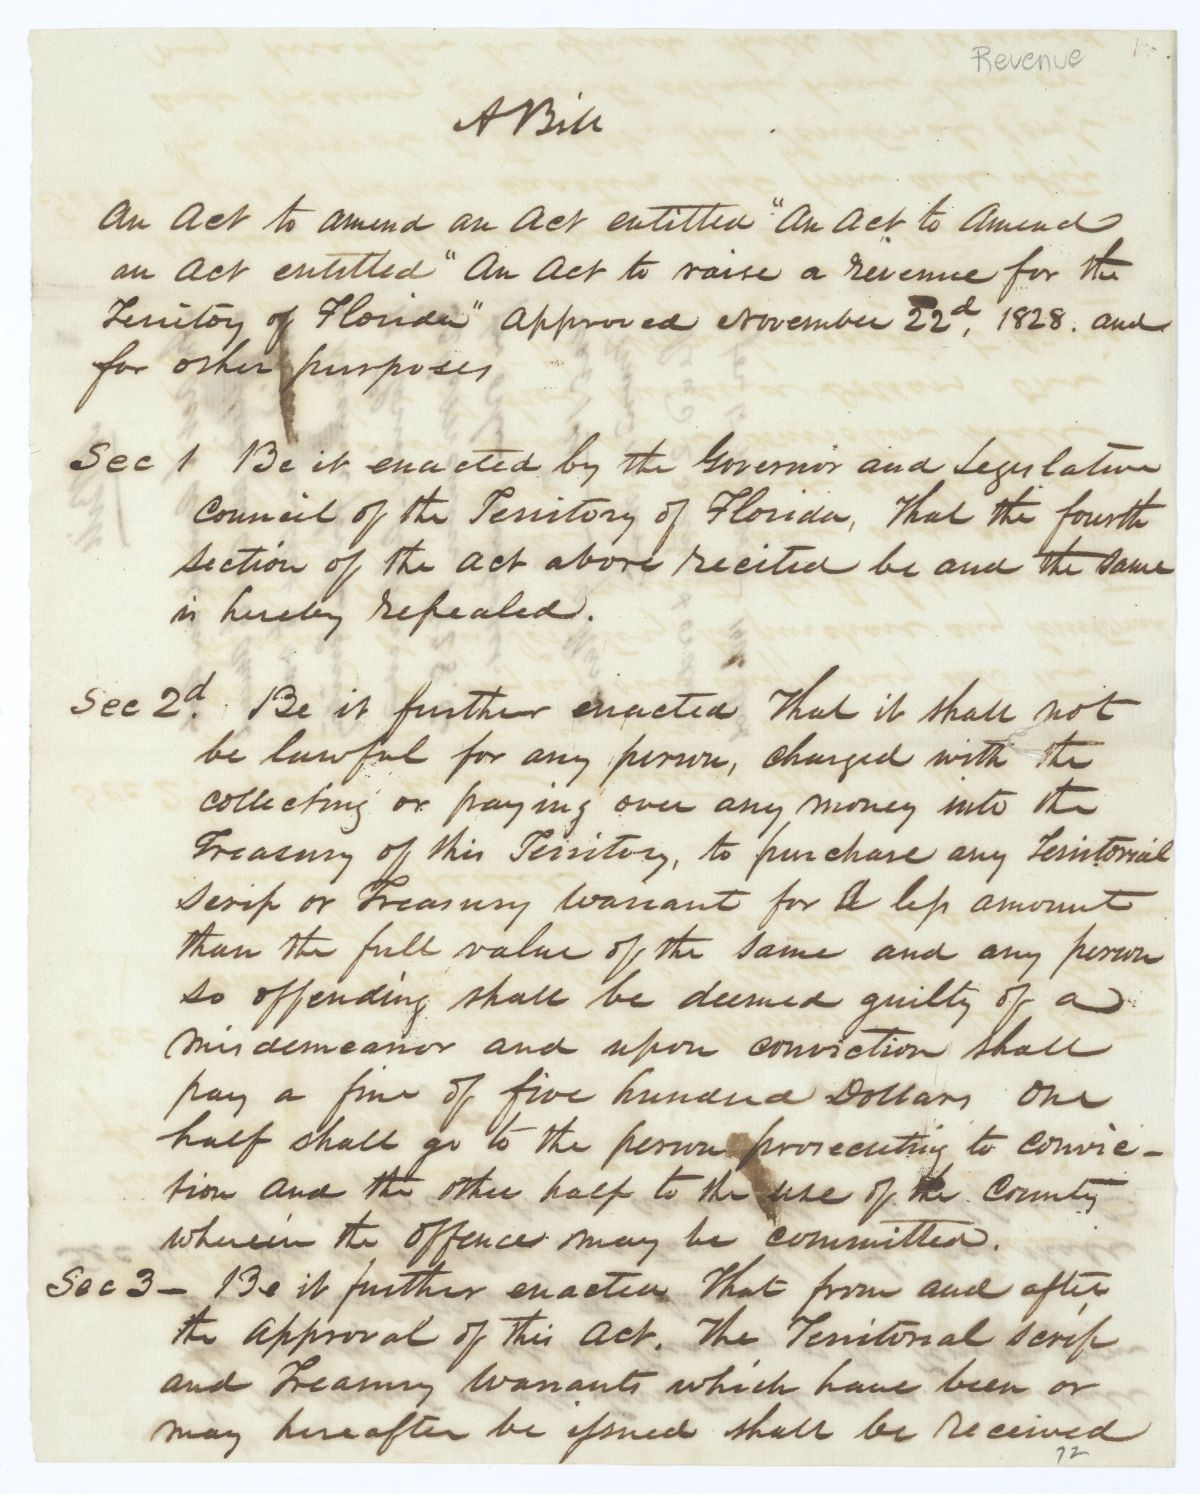 Revenue
A Bill
An Act to amend an Act entitled "An Act to Amend
an Act entitled "An Act to raise a Revenue for the
Territory of Florida" Approved November 22d, 1828. and
for other purposes
Sec 1 Be it enacted by the Governor and Legislative
Council of the Territory of Florida, That the fourth
section of the Act above recited be and the same
is hereby repealed.
Sec 2d. Be it further enacted That it shall not
be lawful for any person, charged with the
collecting or paying over any money into the
Treasury of this Territory, to purchase any Territorial
scrip or Treasury Warrant for a less amount
than the full value of the same and any person
so offending shall be deemed guilty of a
Misdemeanor and upon conviction shall
pay a fine of five hundred Dollars One
half shall go to the person prosecuting to convic-
tion and the other half to the use of the County
wherein the offence may be committed.
Sec 3- Be it further enacted That from and after
the approval of this Act. The Territorial scrip
and Treasury Warrants which have been or
may hereafter be issued shall be received
72